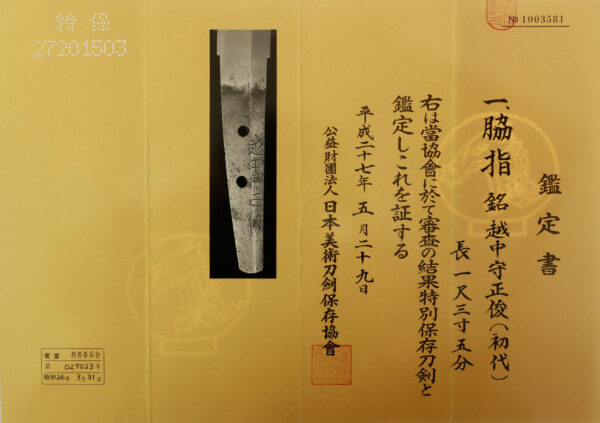 № 1003581
鑑定書
一、脇指 銘 越中守正俊(初代)
長 一尺三寸五分
右は當協會に於て審査の結果特別保存刀剣と
鑑定しこれを証する
平成二十七年 五月二十九日
公益財團法人 日本美術刀剣保存協會
特保
27201503
東京 教育委員会
第 027023 号
昭和26年 3月31日